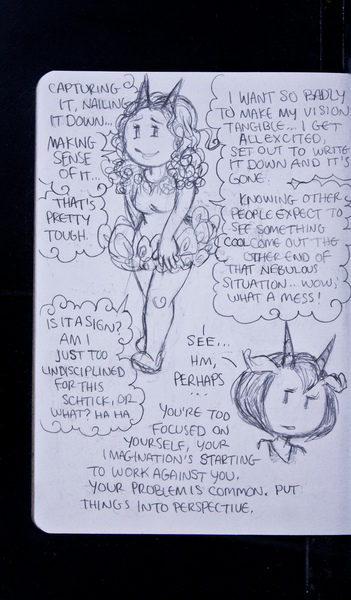 CAPTURING
IT, NAILING
IT DOWN...
MAKING
SENSE
OF IT...
THAT'S
PRETTY
TOUGH.
I WANT SO BADLY
TO MAKE MY VISION
TANGIBLE... I GET
ALL EXCITED,
SET OUT TO WRITE
IT DOWN AND IT'S
GONE.
KNOWING OTHER
PEOPLE EXPECT TO
SEE SOMETHING
COOL COME OUT THE
OTHER END OF
THAT NEBULOUS
SITUATION... WOW,
WHAT A MESS!
IS IT A SIGN?
AM I
JUST TOO
UNDISCIPLINED
FOR THIS
SCHTICK, OR
WHAT? HA HA.
I
SEE...
HM,
PERHAPS
...
YOU'RE TOO
FOCUSED ON
YOURSELF, YOUR
IMAGINATION'S STARTING
TO WORK AGAINST YOU.
YOUR PROBLEM IS COMMON. PUT
THINGS INTO PERSPECTIVE.